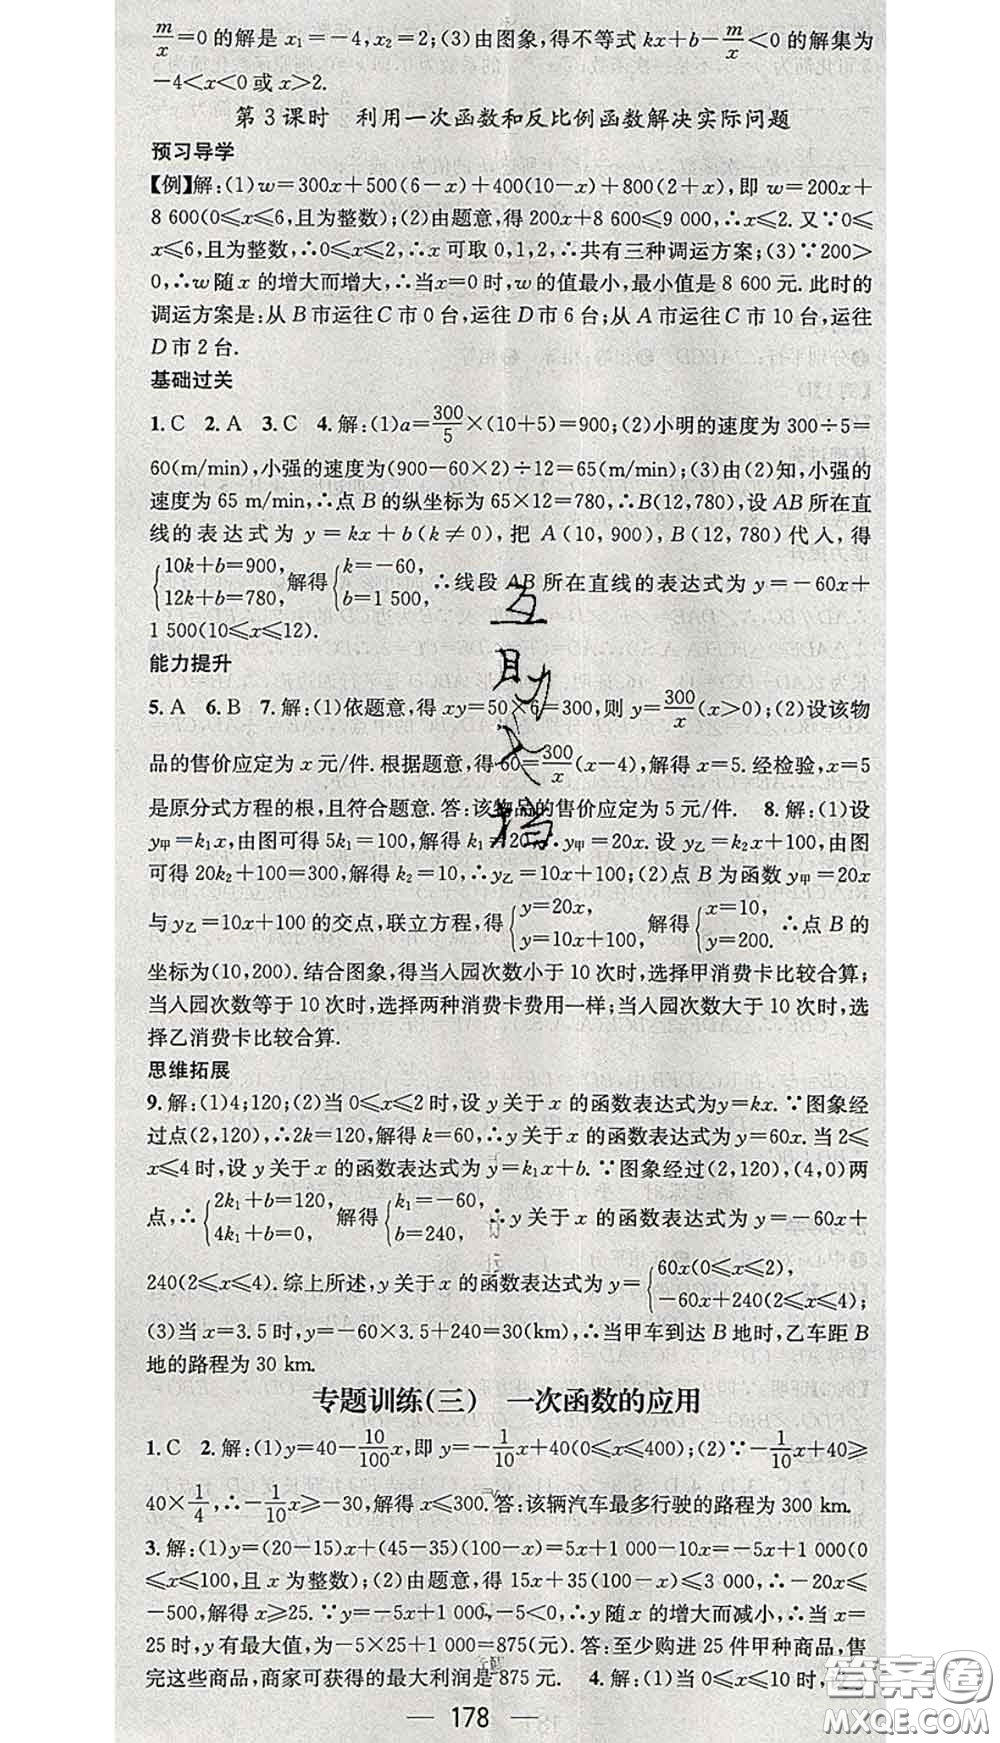 m/x=0的解是 x₁=-4,x₂=2;(3)由图象,得不等式 kx+b-m/x<0的解集为
-4<x<0或 x>2.
第3课时 利用一次函数和反比例函数解决实际问题
预习导学
【例】解:(1)w=300x+500(6-x)+400(10-x)+800(2+x),即 w=200x+
8 600(0⩽x⩽6,且为整数);(2)由题意,得 200x+8 600⩽9 000,∴x⩽2.又∵0⩽
x⩽6,且为整数,∴0⩽x⩽2,∴x可取0,1,2,∴共有三种调运方案;(3)∵200>
0,∴w随x的增大而增大,∴当x=0时,w的值最小,最小值是8 600元.此时的
调运方案是:从B市运往C市0台,运往D市6台;从A市运往C市10台,运往
D市2台.
基础过关
1.C 2.A 3.C 4.解:(1)a=300/5×(10+5)=900;(2)小明的速度为300÷5=
60(m/min),小强的速度为(900-60×2)÷12=65(m/min);(3)由(2)知,小强的
速度为65 m/min,∴点B的纵坐标为65×12=780,∴B(12,780),设AB所在直
线的表达式为 y=kx+b(k≠0),把 A(10,900),B(12,780)代入,得
{10k+b=900, 12k+b=780, 解得{k=-60, b=1 500, ∴线段AB所在直线的表达式为 y=-60x+
1 500(10⩽x⩽12).
能力提升
5.A 6.B 7.解:(1)依题意,得xy=50×6=300,则y=300/x(x>0);(2)设该物
品的售价应定为x元/件.根据题意,得60=300/x(x-4),解得x=5.经检验,x=5
是原分式方程的根,且符合题意.答:该物品的售价应定为5元/件. 8.解:(1)设
y甲=k₁x,由图可得5k₁=100,解得k₁=20,∴y甲=20x.设y乙=k₂x+100,由图
可得20k₂+100=300,解得k₂=10,∴y乙=10x+100;(2)点B为函数y甲=20x
与y乙=10x+100的交点,联立方程,得{y=20x, y=10x+100, 解得{x=10, y=200. ∴点B的
坐标为(10,200).结合图象,得当入园次数小于10次时,选择甲消费卡比较合算;
当入园次数等于10次时,选择两种消费卡费用一样;当入园次数大于10次时,选
择乙消费卡比较合算.
思维拓展
9.解:(1)4;120;(2)当0⩽x⩽2时,设y关于x的函数表达式为y=kx.∵图象经
过点(2,120),∴2k=120,解得k=60,∴y关于x的函数表达式为y=60x.当2⩽
x⩽4时,设y关于x的函数表达式为y=k₁x+b.∵图象经过(2,120),(4,0)两
点,∴{2k₁+b=120, 4k₁+b=0, 解得{k₁=-60, b=240, ∴y关于x的函数表达式为y=-60x+
240(2⩽x⩽4).综上所述,y关于x的函数表达式为y={60x(0⩽x⩽2), -60x+240(2⩽x⩽4);
(3)当x=3.5时,y=-60×3.5+240=30(km),∴当甲车到达B地时,乙车距B
地的路程为30 km.
专题训练(三) 一次函数的应用
1.C 2.解:(1)y=40-10/100x,即y=-1/10x+40(0⩽x⩽400);(2)∵-1/10x+40⩾
40×1/4,∴-1/10x⩾-30,解得x⩽300.答:该辆汽车最多行驶的路程为300 km.
3.解:(1)y=(20-15)x+(45-35)(100-x)=5x+1 000-10x=-5x+1 000(0
⩽x⩽100,且x为整数);(2)由题意,得15x+35(100-x)⩽3 000,∴-20x⩽
-500,解得x⩾25.∵y=-5x+1 000,-5<0,∴y随x的增大而减小,∴当x=
25时,y有最大值,为-5×25+1 000=875(元).答:至少购进25件甲种商品,售
完这些商品,商家可获得的最大利润是875元. 4.解:(1)当0⩽x⩽10时,
— 178 —
互
助
文
档
答案圈
MXQE.COM